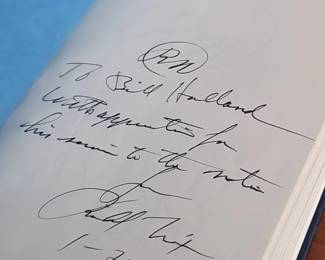 RN
To Bill Holland
With appreciation for
his service to the nation
from
1-2